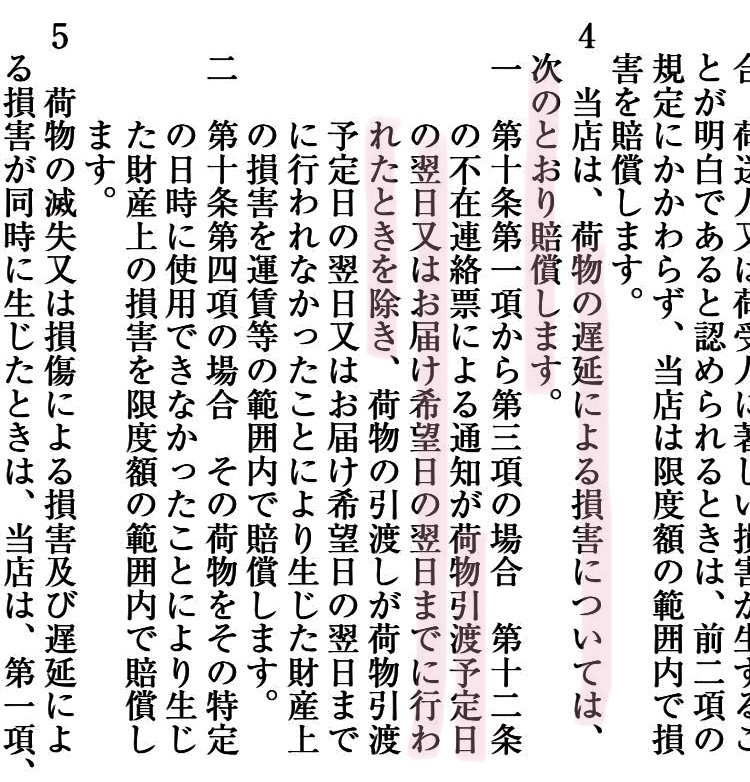 合　荷送人又は荷受人に著しい損害が生ずるこ
とが明白であると認められるときは、前二項の
規定にかかわらず、当店は限度額の範囲内で損
害を賠償します。
4　当店は、荷物の遅延による損害については、
次のとおり賠償します。
一　第十条第一項から第三項の場合　第十二条
の不在連絡票による通知が荷物引渡予定日
の翌日又はお届け希望日の翌日までに行わ
れたときを除き、荷物の引渡しが荷物引渡
予定日の翌日又はお届け希望日の翌日まで
に行われなかったことにより生じた財産上
の損害を運賃等の範囲内で賠償します。
二　第十条第四項の場合　その荷物をその特定
の日時に使用できなかったことにより生じ
た財産上の損害を限度額の範囲内で賠償し
ます。
5　荷物の滅失又は損傷による損害及び遅延によ
る損害が同時に生じたときは、当店は、第一項、